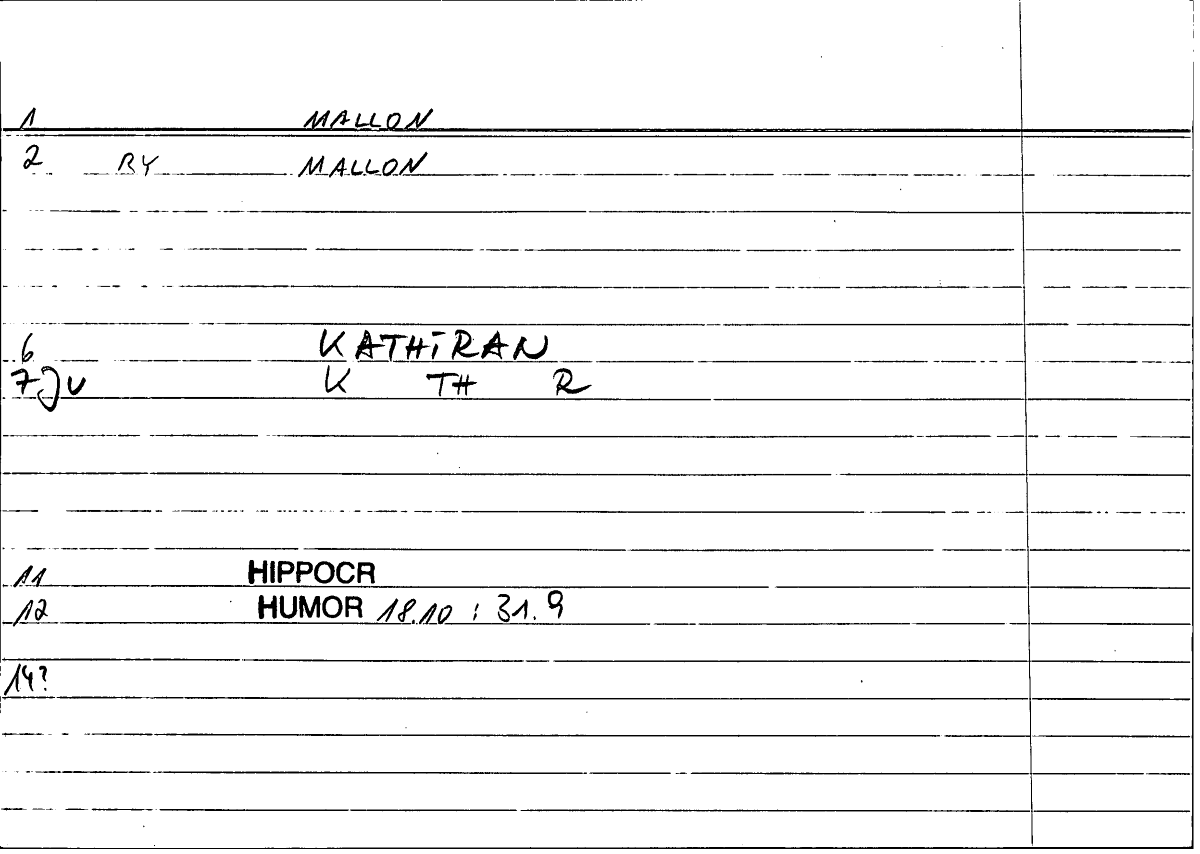 1 MALLON
2 RY MALLON
6 KATHIRAN
7 JU K TH R
11 HIPPOCR
12 HUMOR 18.10 : 31.9
14?